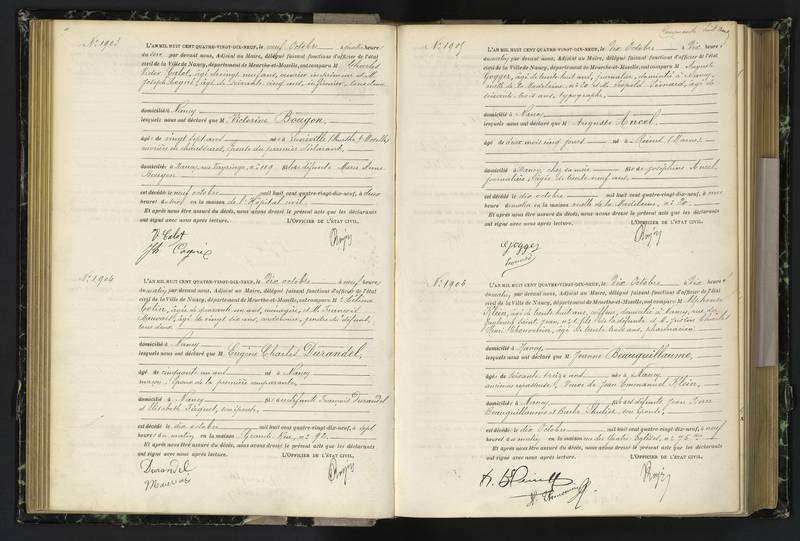 N° 1903
L'AN MIL HUIT CENT QUATRE-VINGT-DIX-NEUF, le neuf Octobre à quatre heures
du soir par devant nous, Adjoint au Maire, délégué faisant fonctions d'officier de l'état
civil de la Ville de Nancy, département de Meurthe-et-Moselle, ont comparu M Charles
Victor Calot, âgé de vingt neuf ans, ouvrier imprimeur et M.
Joseph âgé de soixante cinq ans, infirmier, tous deux
domicilié à Nancy
lesquels nous ont déclaré que M Victorine Bougon,
âgé de vingt sept ans né à Lunéville (Meurthe & Moselle)
ouvrière en chaussures, épouse du premier déclarant,
domicilié à Nancy, rue n° 109 fils de défunte Marie Anne
Bougon
est décédé le neuf octobre mil huit cent quatre-vingt-dix-neuf, à deux
heures du soir en la maison de l'Hôpital civil.
Et après nous être assuré du décès, nous avons dressé le présent acte que les déclarants
ont signé avec nous après lecture. L'OFFICIER DE L'ÉTAT CIVIL,
V. Calot
N° 1904
L'AN MIL HUIT CENT QUATRE-VINGT-DIX-NEUF, le Dix octobre à neuf heures
du matin, par devant nous, Adjoint au Maire, délégué faisant fonctions d'officier de l'état
civil de la Ville de Nancy, département de Meurthe-et-Moselle, ont comparu M Célina
Colin, âgée de quarante un ans, ménagère, et M. François
âgé de vingt six ans, gendre du défunt,
tous deux
domicilié à Nancy
lesquels nous ont déclaré que M Eugène Charles Durandel,
âgé de cinquante un ans né à Nancy
maçon, époux de la première comparante,
domicilié à Nancy fils de défunts François Durandel
et Elisabeth son épouse.
est décédé le dix octobre mil huit cent quatre-vingt-dix-neuf, à sept
heures du matin, en la maison Grande Rue, n° 92.
Et après nous être assuré du décès, nous avons dressé le présent acte que les déclarants
ont signé avec nous après lecture. L'OFFICIER DE L'ÉTAT CIVIL,
Durandel
N° 1905
L'AN MIL HUIT CENT QUATRE-VINGT-DIX-NEUF, le Dix Octobre à Dix heures
du matin par devant nous, Adjoint au Maire, délégué faisant fonctions d'officier de l'état
civil de la Ville de Nancy, département de Meurthe-et-Moselle, ont comparu M Auguste
Gogger, âgé de trente huit ans, journalier, domicilié à Nancy,
ruelle de la Madeleine, n° 20 et M. Léopold âgé de
soixante trois ans, typographe,
domicilié à Nancy
lesquels nous ont déclaré que M Auguste Ancel,
âgé de deux mois cinq jours né à Reims (Marne)
domicilié à Nancy, chez sa mère fils de Joséphine Ancel,
journalière, âgée de trente neuf ans.
est décédé le dix octobre mil huit cent quatre-vingt-dix-neuf, à une
heure du matin en la maison ruelle de la Madeleine, n° 20.
Et après nous être assuré du décès, nous avons dressé le présent acte que les déclarants
ont signé avec nous après lecture. L'OFFICIER DE L'ÉTAT CIVIL,
Gogger
N° 1906
L'AN MIL HUIT CENT QUATRE-VINGT-DIX-NEUF, le Dix Octobre à Dix heures
du matin, par devant nous, Adjoint au Maire, délégué faisant fonctions d'officier de l'état
civil de la Ville de Nancy, département de Meurthe-et-Moselle, ont comparu M Alphonse
Klein, âgé de trente huit ans, coiffeur, domicilié à Nancy, rue du
Faubourg Saint Jean, n° fils de la défunte, et M. Gaston Charles
Henri âgé de trente trois ans, pharmacien
domicilié à Nancy.
lesquels nous ont déclaré que M Jeanne Beauguillaume,
âgé de soixante treize ans né à Nancy
ancienne Veuve de Jean Emmanuel Klein,
domicilié à Nancy fils de défunts Jean Pierre
Beauguillaume et Barbe son épouse.
est décédé le dix Octobre mil huit cent quatre-vingt-dix-neuf, à neuf
heures du matin, en la maison rue des Quatre Eglises, n° 75
Et après nous être assuré du décès, nous avons dressé le présent acte que les déclarants
ont signé avec nous après lecture. L'OFFICIER DE L'ÉTAT CIVIL,